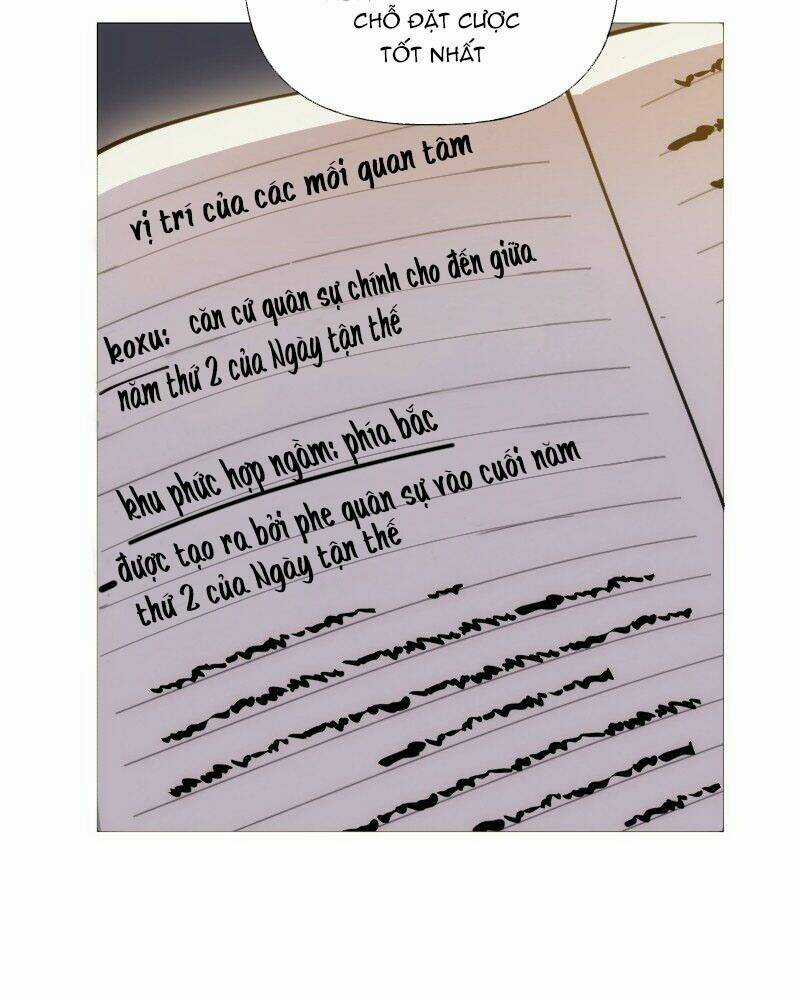 CHỖ ĐẶT CƯỢC
TỐT NHẤT
vị trí của các mối quan tâm
koxu: căn cứ quân sự chính cho đến giữa
năm thứ 2 của Ngày tận thế
khu phức hợp ngầm: phía bắc
được tạo ra bởi phe quân sự vào cuối năm
thứ 2 của Ngày tận thế